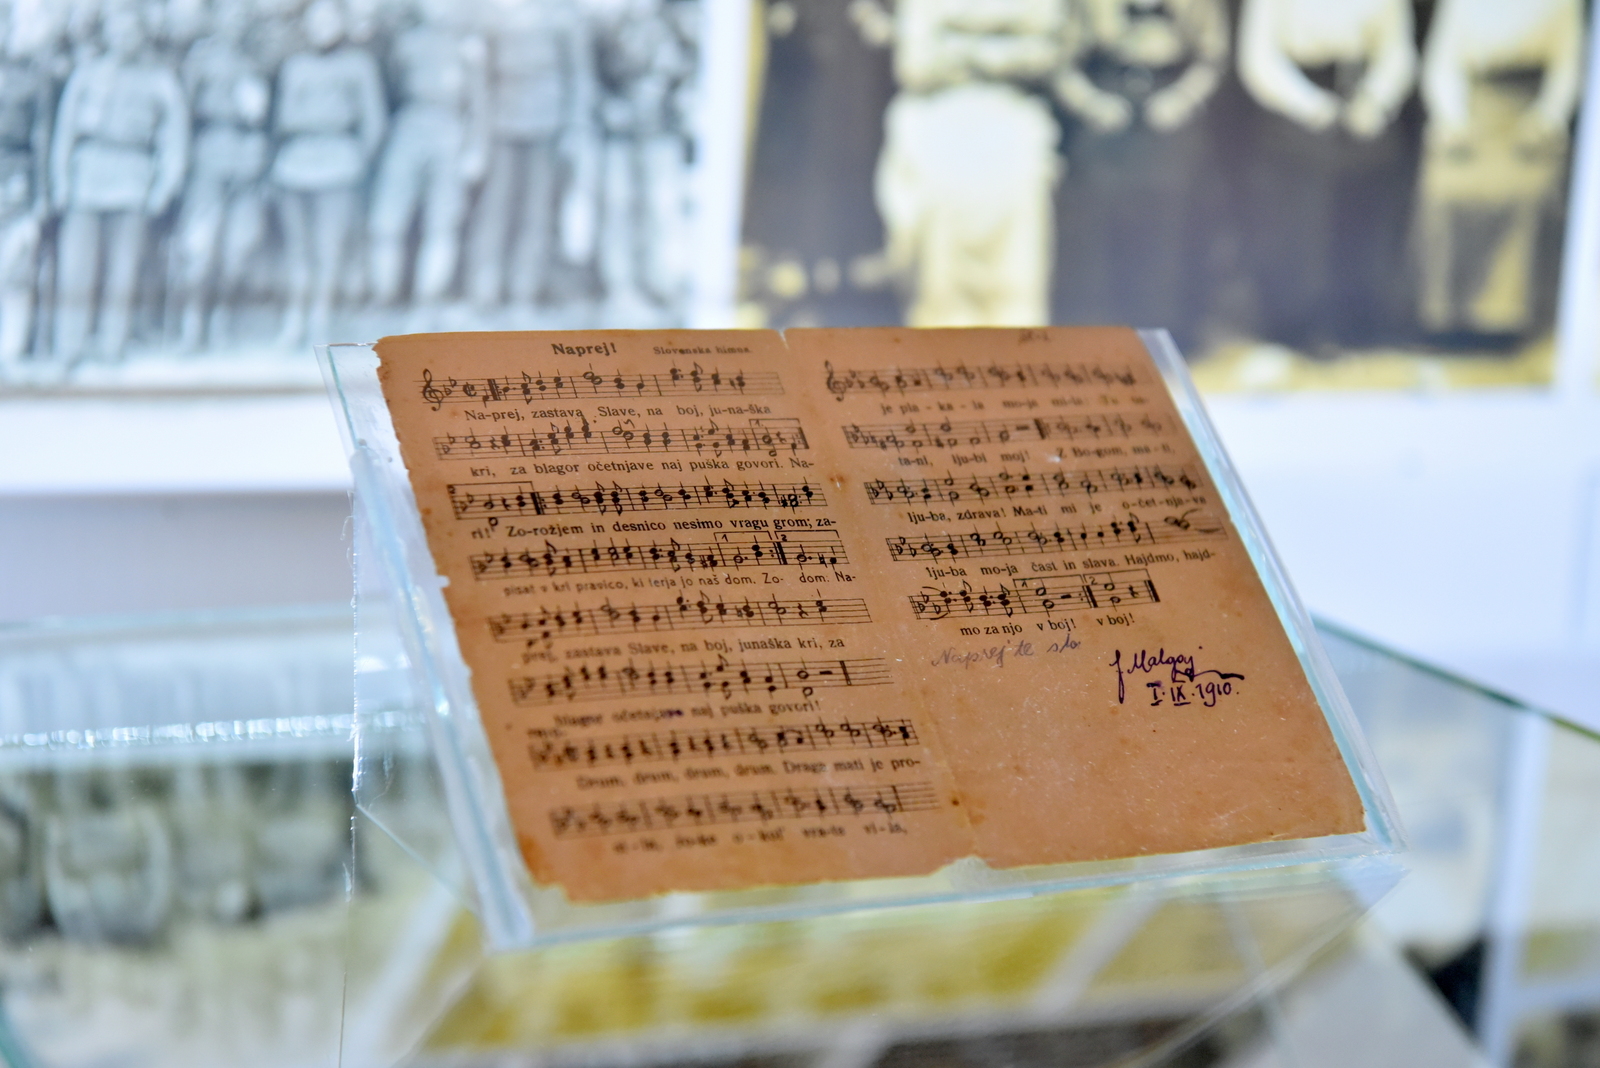 Naprej! Slovenska himna.
Na-prej, zastava Slave, na boj, ju-na-ška
kri, za blagor očetnjave naj puška govori. Na-
ri! Zo-rožjem in desnico nesimo vragu grom; za-
pisat v kri pravico, ki terja jo naš dom. Zo- dom. Na-
prej, zastava Slave, na boj, junaška kri, za
blagor očetnjave naj puška govori!
Drum, drum, drum, drum. Draga mati je pro-
si-la, o-kol vra-tu vi-la,
je pla-ka-la mo-ja mi-la: Tu
ta-ni, lju-bi moj! Z Bo-gom, ma-ti,
lju-ba, zdrava! Ma-ti mi je o-čet-nja-va
lju-ba mo-ja čast in slava. Hajdmo, hajd-
mo za njo v boj! v boj!
Naprej te slo
f Malgaj
I. IX. 1910.